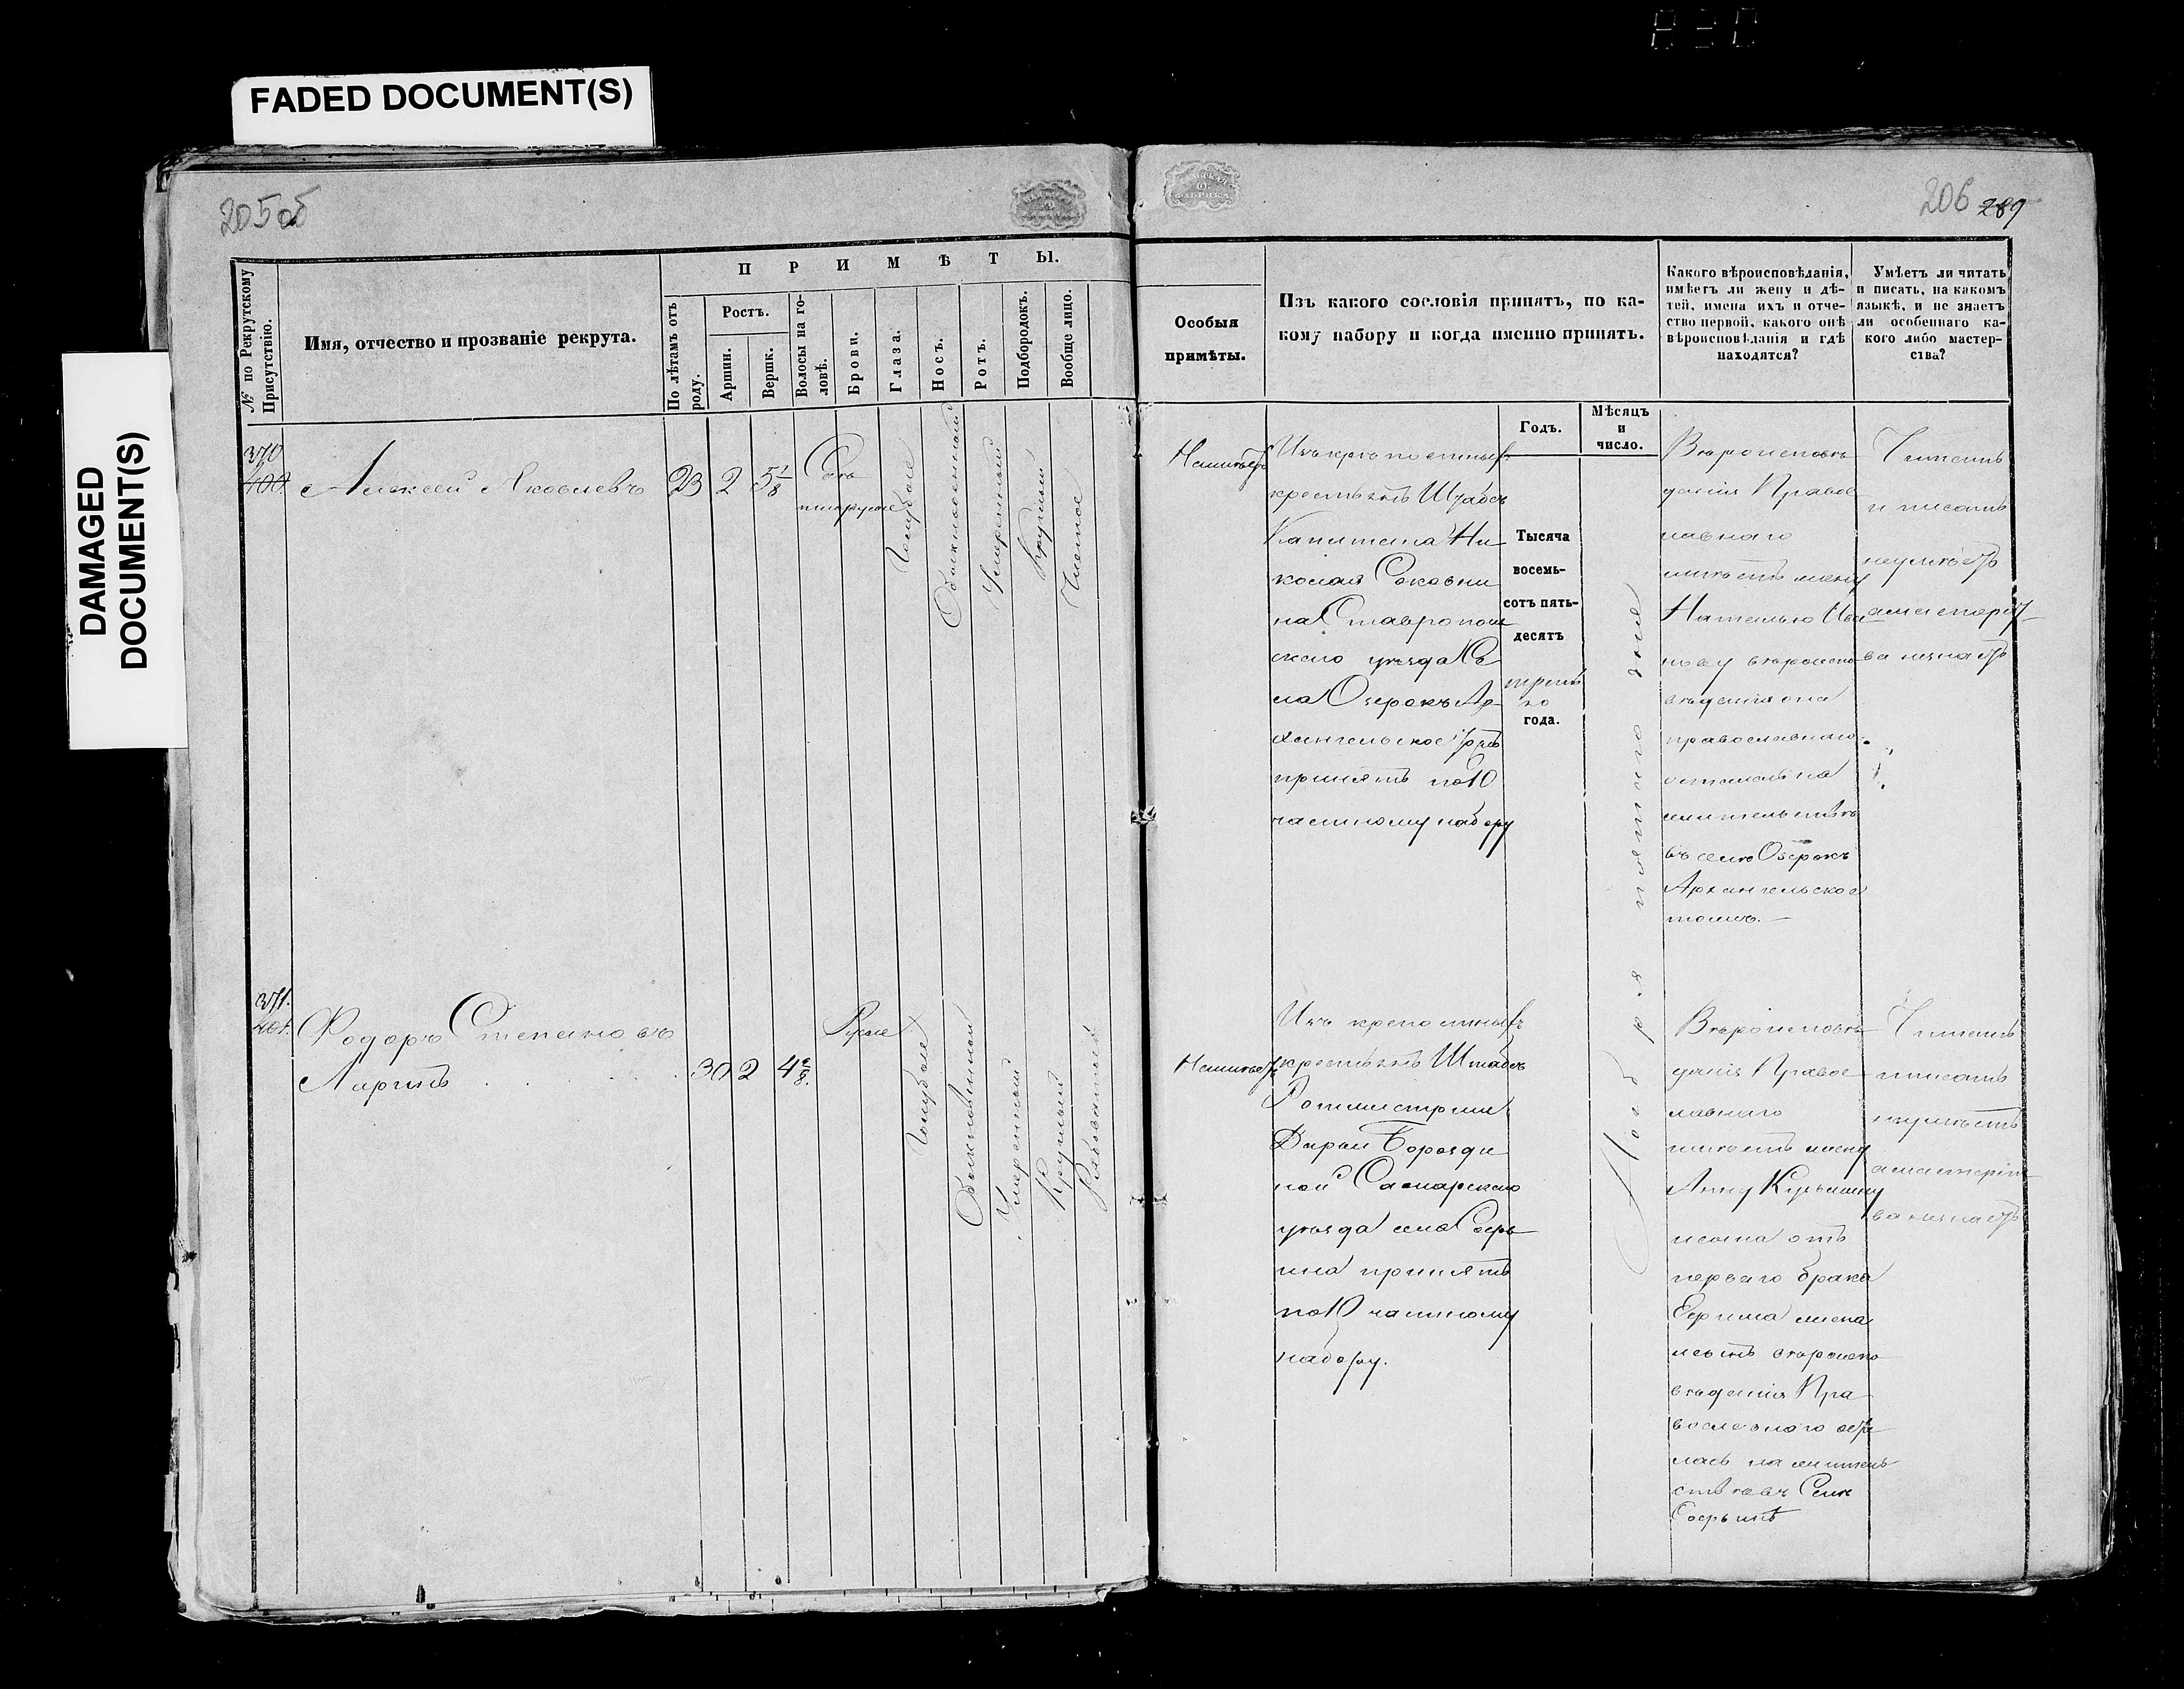 FADED DOCUMENT(S)
DAMAGED
DOCUMENT(S)
205об
№ по Рекрутскому Присутствію.
Имя, отчество и прозваніе рекрута.
ПРИМѢТЫ.
По лѣтамъ отъ роду.
Ростъ.
Аршин.
Вершк.
Волосы на головѣ.
Брови.
Глаза.
Носъ.
Ротъ.
Подбородокъ.
Вообще лицо.
370
400.
Алексей Яковлевъ
23
2
5 1/8
Свѣтлорусые
Голубые
Обыкновенный
Умеренный
Круглый
Чистое
371.
401.
Федоръ Степановъ
30
2
4
Русые
Голубые
Обыкновенный
Умеренный
Круглый
Рябоватый
206 289
Особыя
примѣты.
Изъ какого сословія принятъ, по ка-
кому набору и когда именно принятъ.
Годъ.
Мѣсяцъ
и
число.
Какого вѣроисповѣданія,
имѣетъ ли жену и дѣ-
тей, имена ихъ и отче-
ство первой, какого онѣ
вѣроисповѣданія и гдѣ
находятся?
Умѣетъ ли читать
и писать, на какомъ
языкѣ, и не знаетъ
ли особеннаго ка-
кого либо мастер-
ства?
Неимѣетъ
Изъ крепостныхъ
крестьянъ Штабсъ
Капитана Ни
колая Соковни
на Ставрополь
скаго уезда Се
ла Озерокъ Ар
хангельское тожъ
принятъ по 10
частному набору
Тысяча
восемь-
сотъ пять-
десятъ
треть
яго
года.
Ноября пятаго дня
Вероиспове
данія Правос
лавнаго
имѣетъ жену
Наталью Ива
нову вероиспо
веданія она
православнаго
осталась на
жительстве
въ селе Озеркъ
Архангельское
тожъ.
Читать
и писать
неумѣетъ
а мастерст
ва незнаетъ
Неимѣетъ
Изъ крепостныхъ
крестьянъ Штабсъ
Ротмистрши
Дарьи Борозди
ной Самарскаго
уезда села
принятъ
по 10 частному
набору.
Вероиспове
данія Правос
лавнаго
имѣетъ жену
Анну Кузьмину
и сына отъ
перваго брака
Ефима жена
и сынъ вероиспо
веданія Пра
вославнаго оста
лась на житель
стве въ Селе
Читать
и писать
неумѣетъ
а мастерст
ва незнаетъ